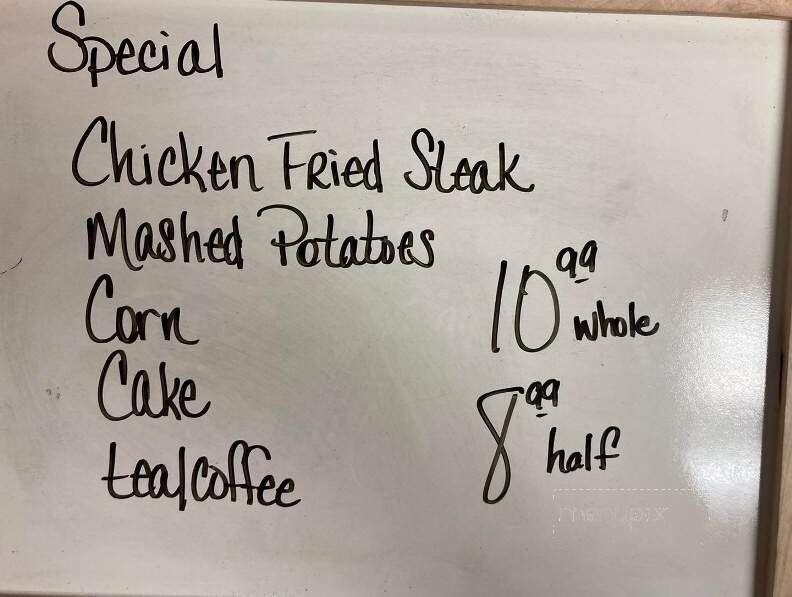 Special
Chicken Fried Steak
Mashed Potatoes
Corn
Cake
tea/coffee
10 99 whole
8 99 half
menupix